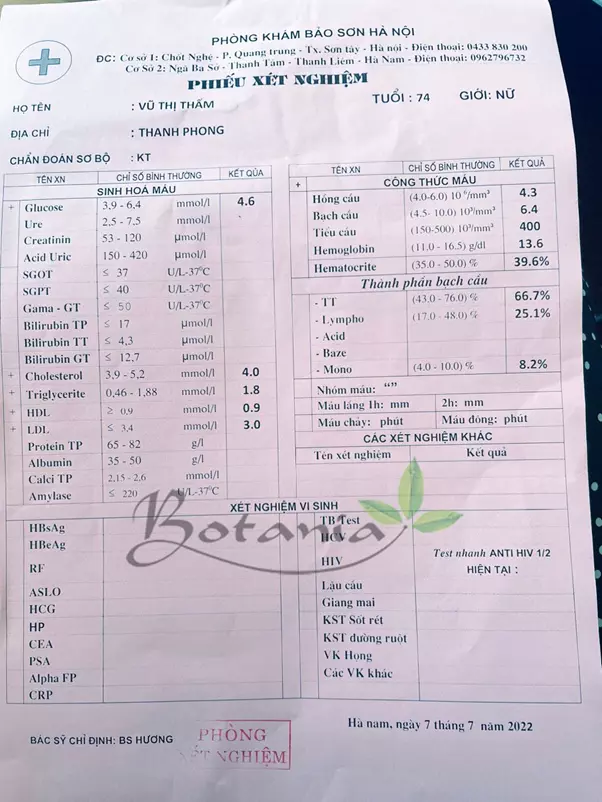 PHÒNG KHÁM BẢO SƠN HÀ NỘI
ĐC: Cơ sở 1: Chốt Nghệ - P. Quang trung - Tx. Sơn tây - Hà nội - Điện thoại: 0433 830 200
Cơ Sở 2: Ngã Ba Sở - Thanh Tâm - Thanh Liêm - Hà Nam - Điện thoại: 0962796732
PHIẾU XÉT NGHIỆM
HỌ TÊN : VŨ THỊ THẤM TUỔI : 74 GIỚI: NỮ
ĐỊA CHỈ : THANH PHONG
CHẨN ĐOÁN SƠ BỘ : KT
TÊN XN CHỈ SỐ BÌNH THƯỜNG KẾT QỦA
SINH HOÁ MÁU
+ Glucose 3,9 - 6,4 mmol/l 4.6
Ure 2,5 - 7,5 mmol/l
Creatinin 53 - 120 µmol/l
Acid Uric 150 - 420 µmol/l
SGOT ≤ 37 U/L-37°C
SGPT ≤ 40 U/L-37°C
Gama - GT ≤ 50 U/L-37°C
Bilirubin TP ≤ 17 µmol/l
Bilirubin TT ≤ 4,3 µmol/l
Bilirubin GT ≤ 12,7 µmol/l
+ Cholesterol 3,9 - 5,2 mmol/l 4.0
+ Triglycerite 0,46 - 1,88 mmol/l 1.8
+ HDL ≥ 0,9 mmol/l 0.9
+ LDL ≤ 3,4 mmol/l 3.0
Protein TP 65 - 82 g/l
Albumin 35 - 50 g/l
Calci TP 2,15 - 2,6 mmol/l
Amylase ≤ 220 U/L-37°C
TÊN XN CHỈ SỐ BÌNH THƯỜNG KẾT QUẢ
+ CÔNG THỨC MÁU
Hồng cầu (4.0-6.0) 10⁶/mm³ 4.3
Bạch cầu (4.5- 10.0) 10³/mm³ 6.4
Tiểu cầu (150-500) 10³/mm³ 400
Hemoglobin (11.0 - 16.5) g/dl 13.6
Hematocrite (35.0 - 50.0) % 39.6%
Thành phần bạch cầu
- TT (43.0 - 76.0) % 66.7%
- Lympho (17.0 - 48.0) % 25.1%
- Acid
- Baze
- Mono (4.0 - 10.0) % 8.2%
Nhóm máu: “”
Máu lắng 1h: mm 2h: mm
Máu chảy: phút Máu đông: phút
CÁC XÉT NGHIỆM KHÁC
Tên xét nghiệm Kết quả
Botania
XÉT NGHIỆM VI SINH
HBsAg
HBeAg
RF
ASLO
HCG
HP
CEA
PSA
Alpha FP
CRP
TB Test
HCV
HIV
Test nhanh ANTI HIV 1/2
HIỆN TẠI :
Lậu cầu
Giang mai
KST Sốt rét
KST đường ruột
VK Họng
Các VK khác
Hà nam, ngày 7 tháng 7 năm 2022
BÁC SỸ CHỈ ĐỊNH: BS HƯƠNG
PHÒNG
XÉT NGHIỆM